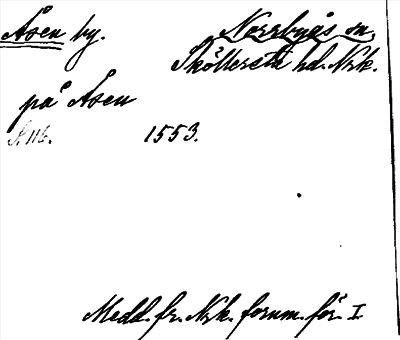 Åsen by. Norrbyås sn,
Sköllersta hd. Nrk.
på Åsen
S. 116. 1553.
Medd. fr. Nrk. fornm. för. I.